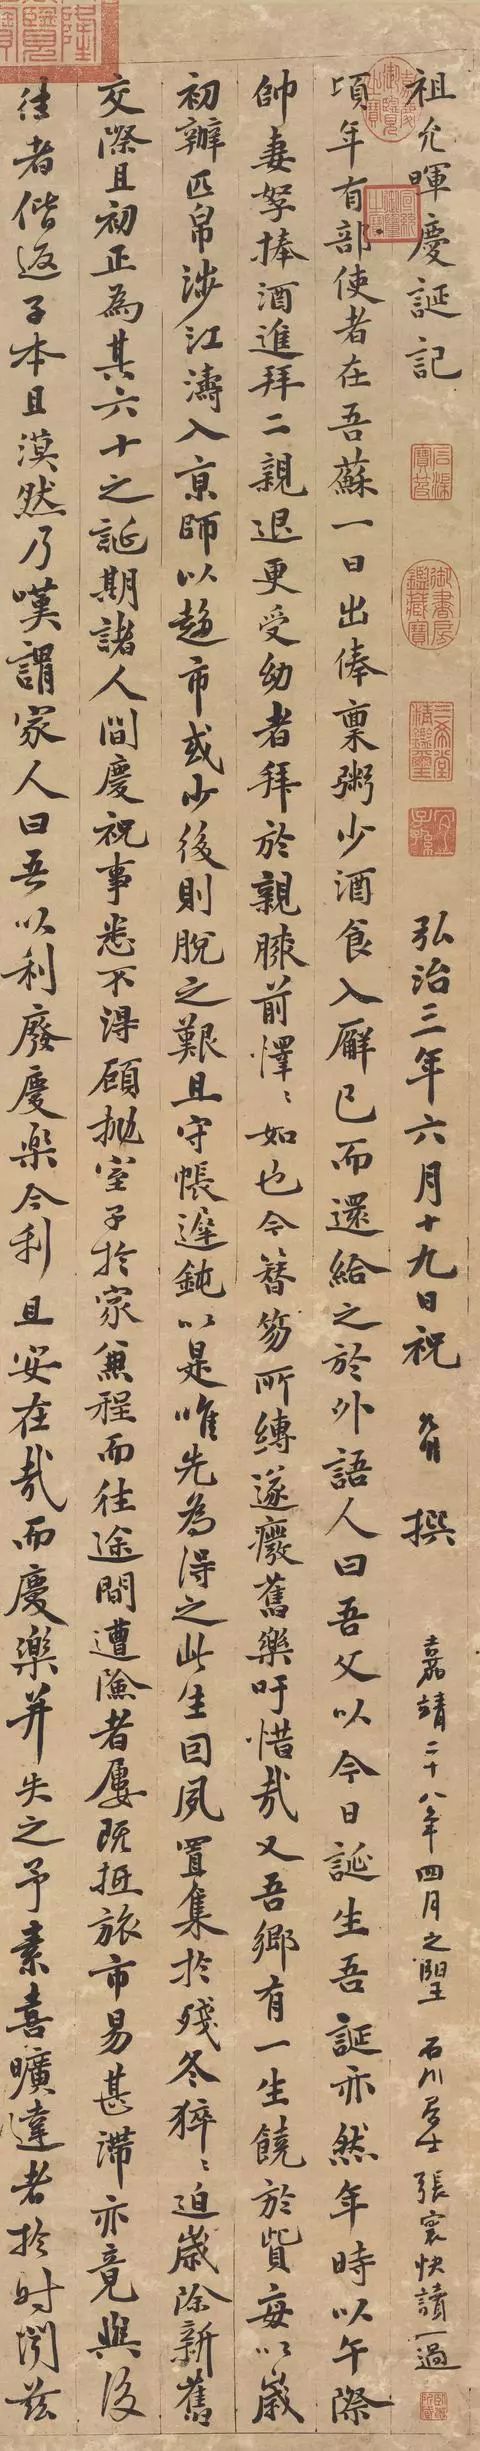 祖允暉慶誕記
弘治三年六月十九日祝允明撰
嘉靖二十八年四月之望 石川居士張寰快讀一過
頃年有部使者在吾蘇一日出俸稟粥少酒食入廨已而還給之於外語人曰吾父以今日誕生吾誕亦然年時以午際
帥妻孥捧酒進拜二親退更受幼者拜於親膝前懌〻如也今簪笏所縛遂癈舊樂吁惜哉又吾鄉有一生饒於貲每以歲
初辦匹帛涉江濤入京師以趍市或少後則脫之艱且守帳遲鈍以是唯先為得之此生因夙置集於殘冬猝〻迫歲除新舊
交際且初正為其六十之誕期諸人間慶祝事悉不得顧拋室子於家兼程而往途間遭險者屢既抵旅市易甚滯亦竟與後
往者偕返子本且漠然乃嘆謂家人曰吾以利廢慶樂今利且安在哉而慶樂并失之予素喜曠達者於时閔茲
三希堂精鑑璽
宜子孫
御書房鑑藏寶
石渠寶笈
嘉慶御覽之寶
宣統御覽之寶